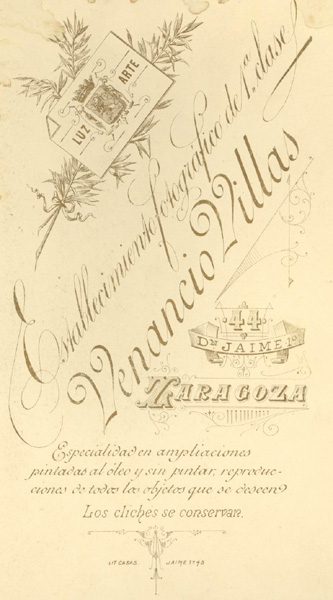 LUZ
ARTE
Establecimiento fotográfico de 1ª clase
Venancio Villas
44
Dn JAIME 1º
ZARAGOZA
Especialidad en ampliaciones
pintadas al óleo y sin pintar, reproduc-
ciones de todos los objetos que se deseen
Los cliches se conservan.
LIT. CASAS. JAIME 1º 43